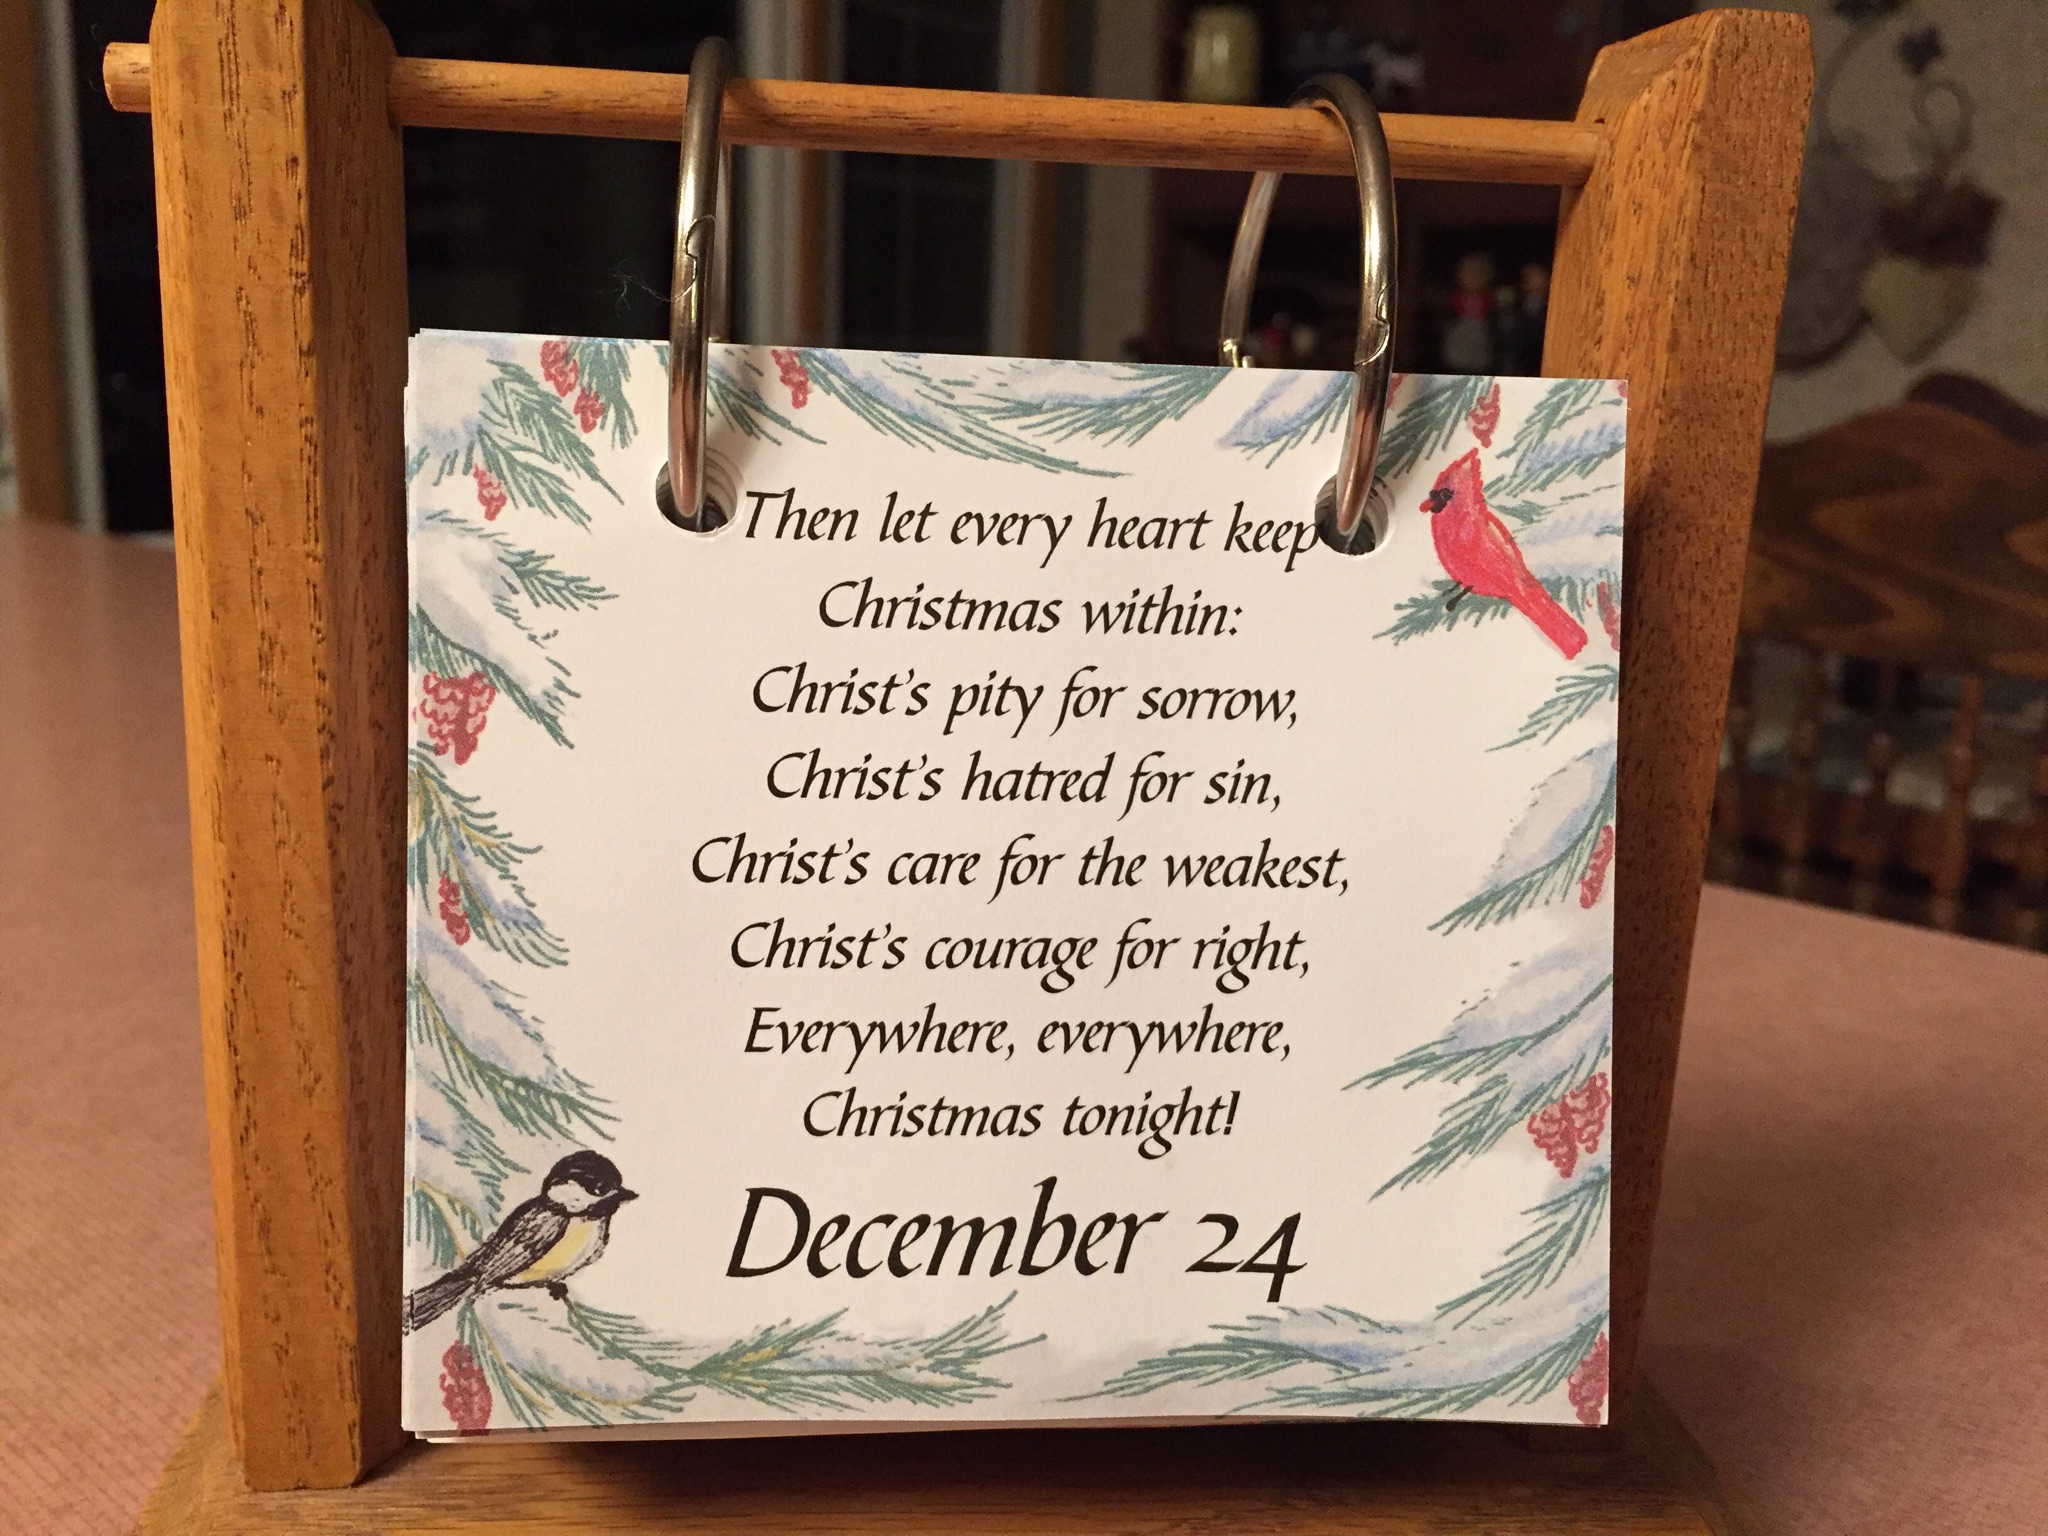 Then let every heart keep
Christmas within:
Christ's pity for sorrow,
Christ's hatred for sin,
Christ's care for the weakest,
Christ's courage for right,
Everywhere, everywhere,
Christmas tonight!
December 24